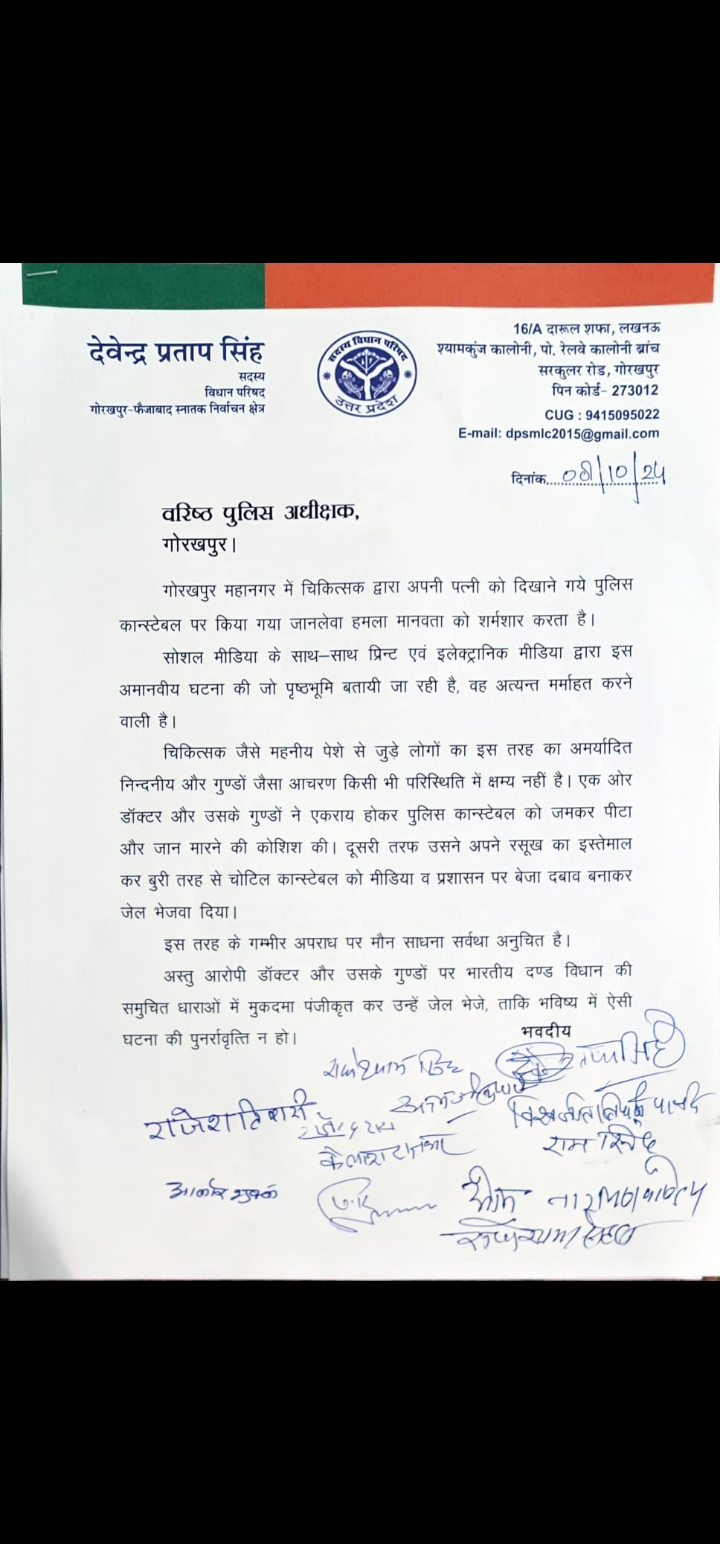 देवेन्द्र प्रताप सिंह
सदस्य
विधान परिषद
गोरखपुर-फैजाबाद स्नातक निर्वाचन क्षेत्र
सदस्य विधान परिषद
उत्तर प्रदेश
16/A दारूल शफा, लखनऊ
श्यामकुंज कालोनी, पो. रेलवे कालोनी ब्रांच
सरकुलर रोड, गोरखपुर
पिन कोर्ड- 273012
CUG : 9415095022
E-mail: dpsmlc2015@gmail.com
दिनांक 08/10/24
वरिष्ठ पुलिस अधीक्षक,
गोरखपुर।
गोरखपुर महानगर में चिकित्सक द्वारा अपनी पत्नी को दिखाने गये पुलिस
कान्स्टेबल पर किया गया जानलेवा हमला मानवता को शर्मशार करता है।
सोशल मीडिया के साथ–साथ प्रिन्ट एवं इलेक्ट्रानिक मीडिया द्वारा इस
अमानवीय घटना की जो पृष्ठभूमि बतायी जा रही है, वह अत्यन्त मर्माहत करने
वाली है।
चिकित्सक जैसे महनीय पेशे से जुड़े लोगों का इस तरह का अमर्यादित
निन्दनीय और गुण्डों जैसा आचरण किसी भी परिस्थिति में क्षम्य नहीं है। एक ओर
डॉक्टर और उसके गुण्डों ने एकराय होकर पुलिस कान्स्टेबल को जमकर पीटा
और जान मारने की कोशिश की। दूसरी तरफ उसने अपने रसूख का इस्तेमाल
कर बुरी तरह से चोटिल कान्स्टेबल को मीडिया व प्रशासन पर बेजा दबाव बनाकर
जेल भेजवा दिया।
इस तरह के गम्भीर अपराध पर मौन साधना सर्वथा अनुचित है।
अस्तु आरोपी डॉक्टर और उसके गुण्डों पर भारतीय दण्ड विधान की
समुचित धाराओं में मुकदमा पंजीकृत कर उन्हें जेल भेजे, ताकि भविष्य में ऐसी
घटना की पुनर्रावृत्ति न हो।
भवदीय
राजेश तिवारी